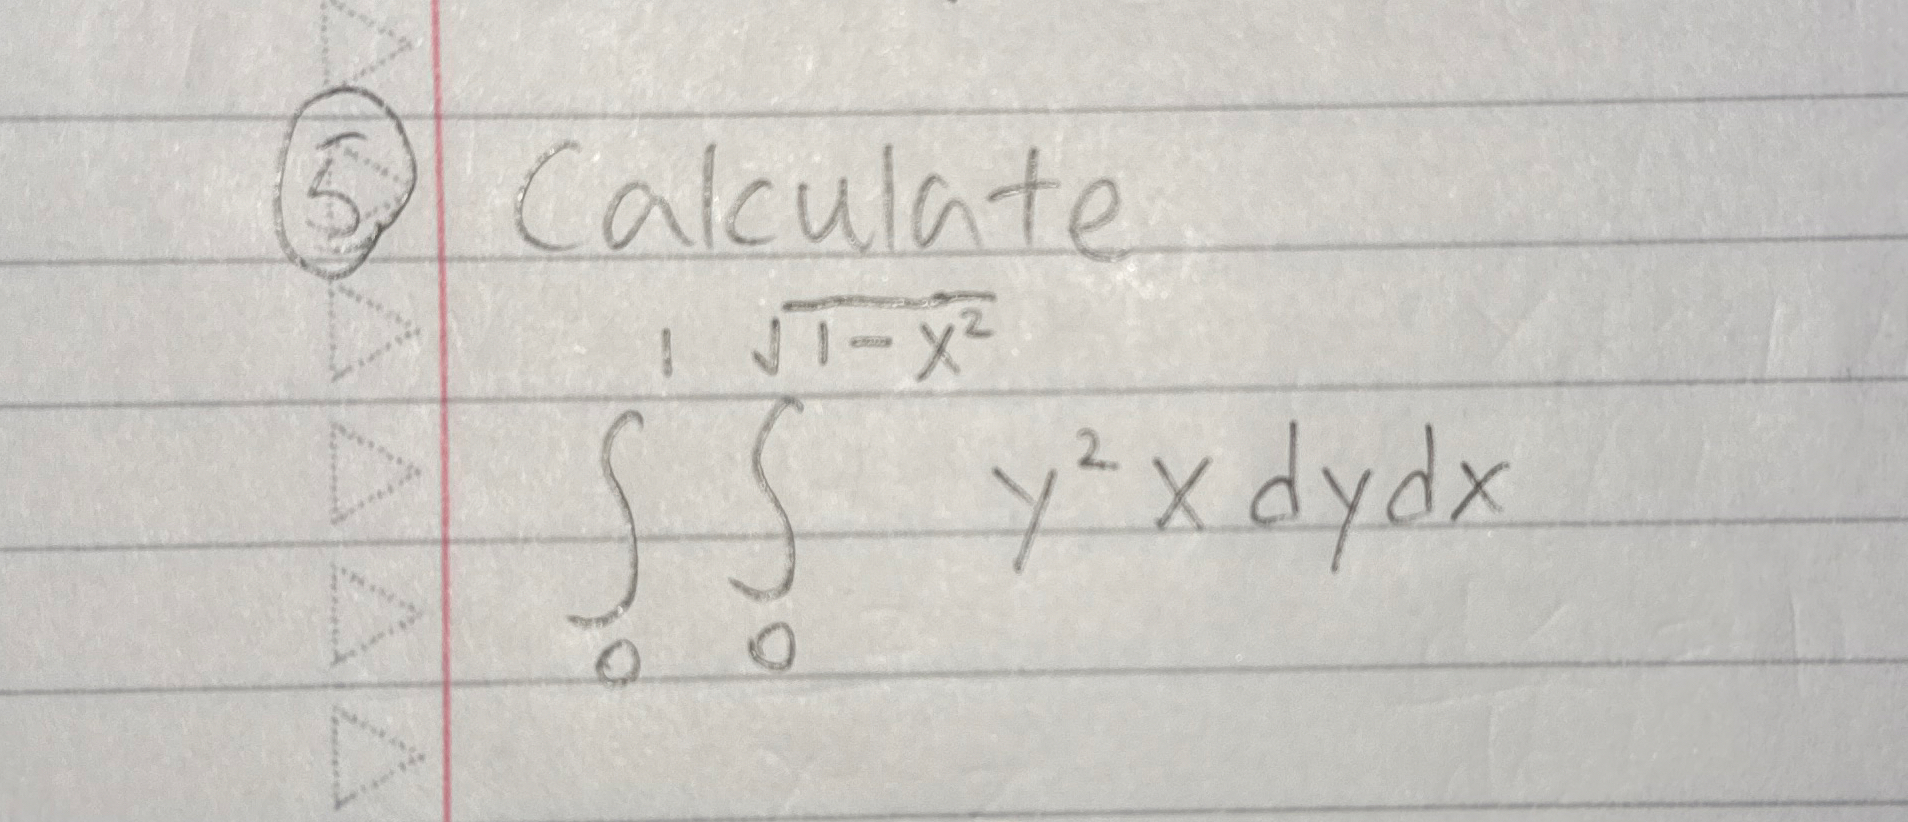 ⑤ Calculate
1 √1-x²
∫ ∫ y² x dy dx
0 0